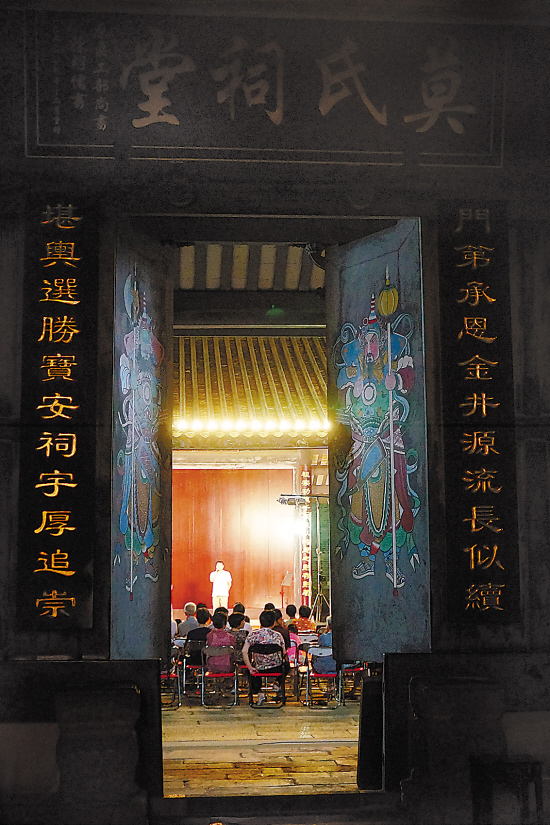 莫氏祠堂
門第承恩金井源流長似續
堪輿選勝寶安祠宇厚追崇